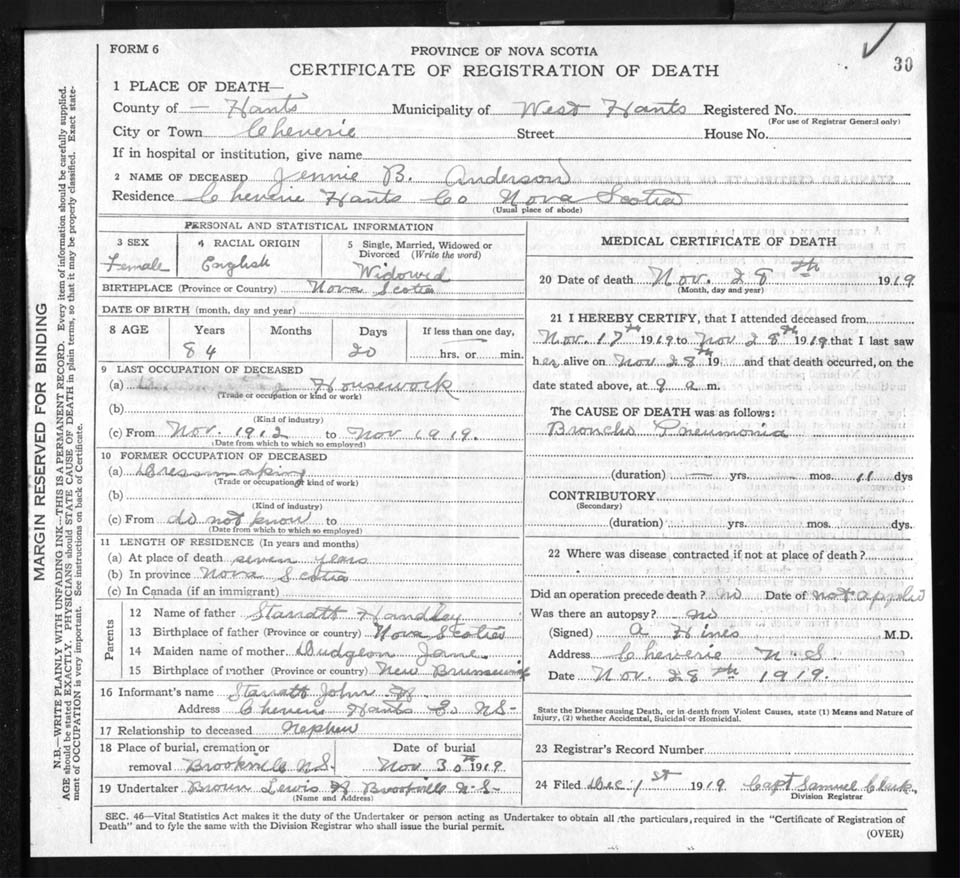 FORM 6
PROVINCE OF NOVA SCOTIA
30
CERTIFICATE OF REGISTRATION OF DEATH
1 PLACE OF DEATH—
County of — Hants Municipality of West Hants Registered No.
(For use of Registrar General only)
City or Town Cheverie Street House No.
If in hospital or institution, give name
2 NAME OF DECEASED Jennie B. Anderson
Residence Cheverie Hants Co Nova Scotia
(Usual place of abode)
PERSONAL AND STATISTICAL INFORMATION
3 SEX Female
4 RACIAL ORIGIN English
5 Single, Married, Widowed or Divorced (Write the word) Widowed
BIRTHPLACE (Province or Country) Nova Scotia
DATE OF BIRTH (month, day and year)
8 AGE Years Months Days If less than one day,
84 20 hrs. or min.
9 LAST OCCUPATION OF DECEASED
(a) Housework
(Trade or occupation or kind or work)
(b)
(Kind of industry)
(c) From Nov. 1912 to Nov 1919.
(Date from which to which so employed)
10 FORMER OCCUPATION OF DECEASED
(a) Dressmaking
(Trade or occupation or kind of work)
(b)
(Kind of industry)
(c) From do not know to
(Date from which to which so employed)
11 LENGTH OF RESIDENCE (In years and months)
(a) At place of death seven years
(b) In province Nova Scotia
(c) In Canada (if an immigrant)
Parents
12 Name of father Starratt Handley
13 Birthplace of father (Province or country) Nova Scotia
14 Maiden name of mother Dudgeon Jane
15 Birthplace of mother (Province or country) New Brunswick
16 Informant's name Starratt John
Address Cheverie Hants Co NS-
17 Relationship to deceased Nephew
18 Place of burial, cremation or Date of burial
removal Brookville N.S- Nov 30th 1919
19 Undertaker Brown Lewis Brookville N-S-
(Name and Address)
MEDICAL CERTIFICATE OF DEATH
20 Date of death Nov. 28th 1919
(Month, day and year)
21 I HEREBY CERTIFY, that I attended deceased from
Nov. 17th 1919 to Nov 28th 1919 that I last saw
her alive on Nov 28th 19 and that death occurred, on the
date stated above, at 9 a m.
The CAUSE OF DEATH was as follows:
Broncho Pneumonia
(duration) — yrs. — mos. 11 dys
CONTRIBUTORY
(Secondary)
(duration) yrs. mos. dys.
22 Where was disease contracted if not at place of death?
Did an operation precede death? no Date of
Was there an autopsy? no
(Signed) A Hines M.D.
Address Cheverie N.S.
Date Nov. 28th 1919.
State the Disease causing Death, or in death from Violent Causes, state (1) Means and Nature of
Injury, (2) whether Accidental, Suicidal or Homicidal.
23 Registrar's Record Number
24 Filed Dec 1st 1919 Capt Samuel
Division Registrar
SEC. 46—Vital Statistics Act makes it the duty of the Undertaker or person acting as Undertaker to obtain all the particulars, required in the "Certificate of Registration of
Death" and to fyle the same with the Division Registrar who shall issue the burial permit.
(OVER)
MARGIN RESERVED FOR BINDING
N.B.—WRITE PLAINLY WITH UNFADING INK—THIS IS A PERMANENT RECORD. Every item of information should be carefully supplied.
AGE should be stated EXACTLY. PHYSICIANS should STATE CAUSE OF DEATH in plain terms, so that it may be properly classified. Exact state-
ment of OCCUPATION is very important. See instructions on back of Certificate.